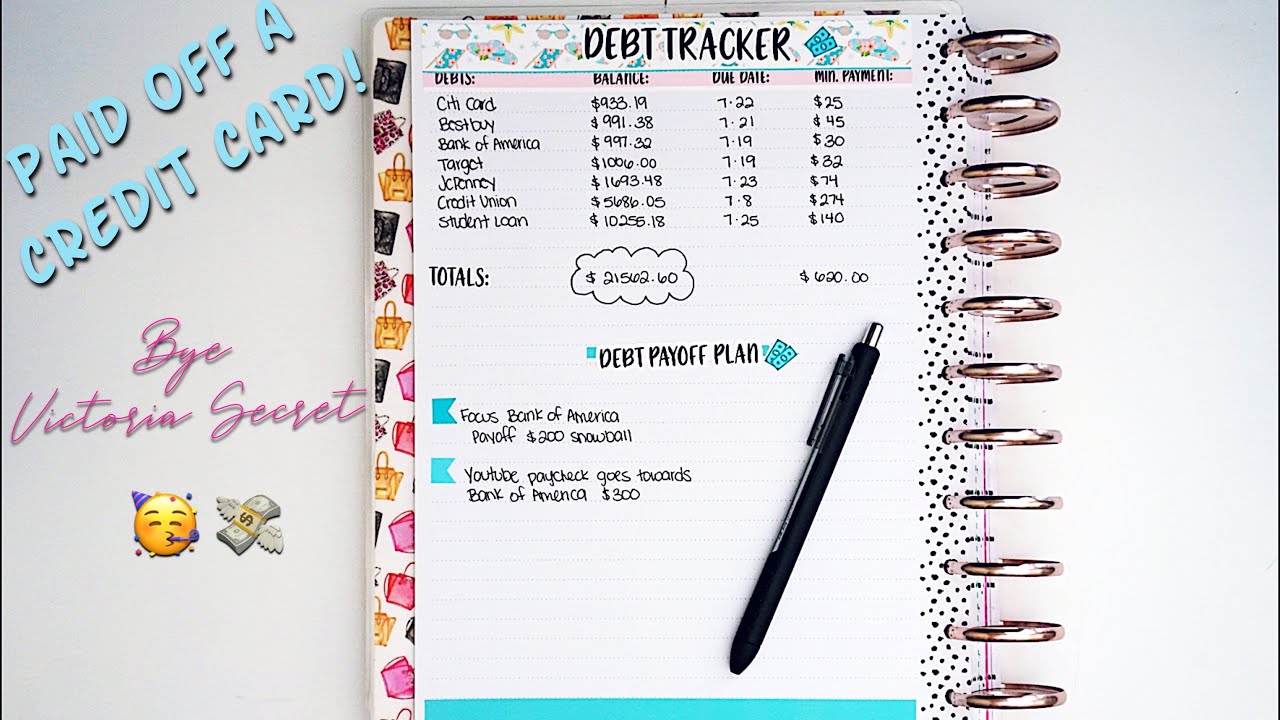 PAID OFF A
CREDIT CARD!
Bye
Victoria Secret
DEBT TRACKER
DEBTS: BALANCE: DUE DATE: MIN. PAYMENT:
Citi Card $933.19 7·22 $25
Bestbuy $991.38 7·21 $45
Bank of America $997.32 7·19 $30
Target $1006.00 7·19 $32
JcPenney $1693.48 7·23 $74
Credit Union $5686.05 7·8 $274
Student Loan $10255.18 7·25 $140
TOTALS: $21562.60 $620.00
DEBT PAYOFF PLAN
Focus Bank of America
Payoff $200 snowball
Youtube paycheck goes towards
Bank of America $300